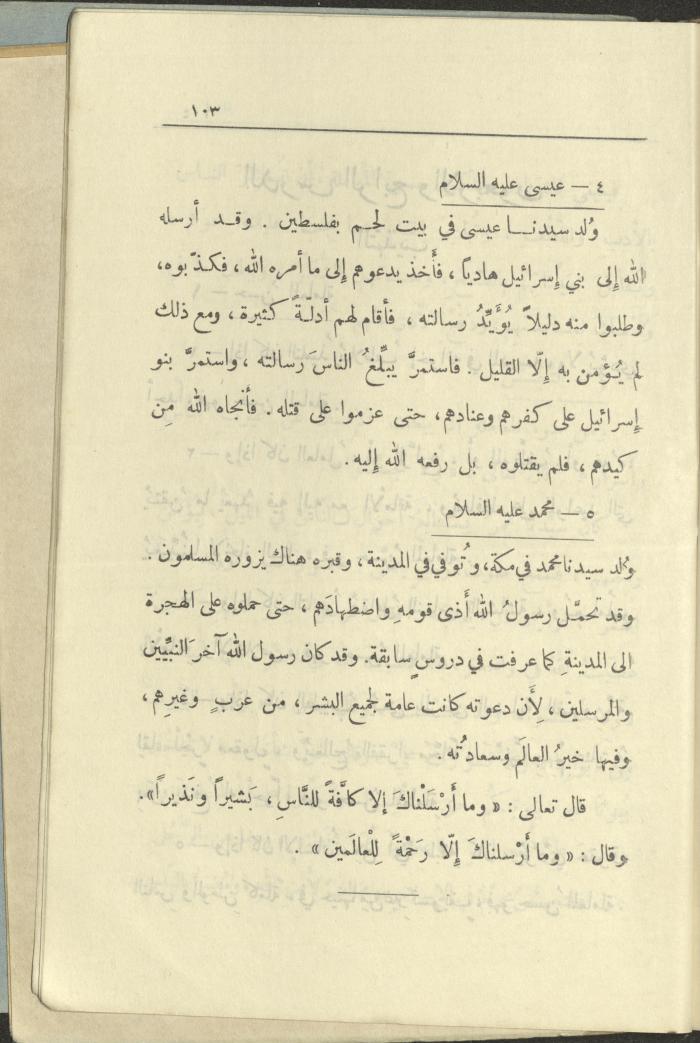 ١٠٣
٤ – عيسى عليه السلام
وُلد سيدنا عيسى في بيت لحم بفلسطين . وقد أرسله
الله إلى بني إسرائيل هادياً ، فأخذ يدعوهم إلى ما أمره الله ، فكذّبوه ،
وطلبوا منه دليلاً يُؤَيِّدُ رسالته ، فأقام لهم أدلّةً كثيرة ، ومع ذلك
لم يُؤمن به إلّا القليل . فاستمرَّ يبلِّغُ الناسَ رسالته ، واستمرَّ بنو
إسرائيل على كفرهم وعنادهم ، حتى عزموا على قتله . فأنجاه الله مِن
كيدهم ، فلم يقتلوه ، بل رفعه الله إليه .
٥ – محمد عليه السلام
وُلد سيدنا محمد في مكة ، وتُوفي في المدينة ، وقبره هناك يزوره المسلمون .
وقد تحمَّل رسولُ الله أَذى قومهِ واضطهادَهم ، حتى حملوه على الهجرة
الى المدينةِ كما عرفت في دروسٍ سابقة . وقد كان رسول الله آخرَ النبِّيين
والمرسلين ، لِأَن دعوته كانت عامة لجميع البشر ، من عربٍ وغيرِهِم ،
وفيها خيرُ العالَم وسعادُته .
قال تعالى : « وما أَرْسَلْناكَ إلا كافَّةً للنَّاسِ ، بَشيراً ونَذيراً » .
وقال : « وما أَرْسلناكَ إِلّا رَحْمَةً لِلْعالَمين » .